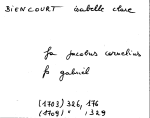 BIENCOURT isabelle clare
fa jacobus cornelius
fr gabriel
(1703) 326, 176
(1709) " , 329